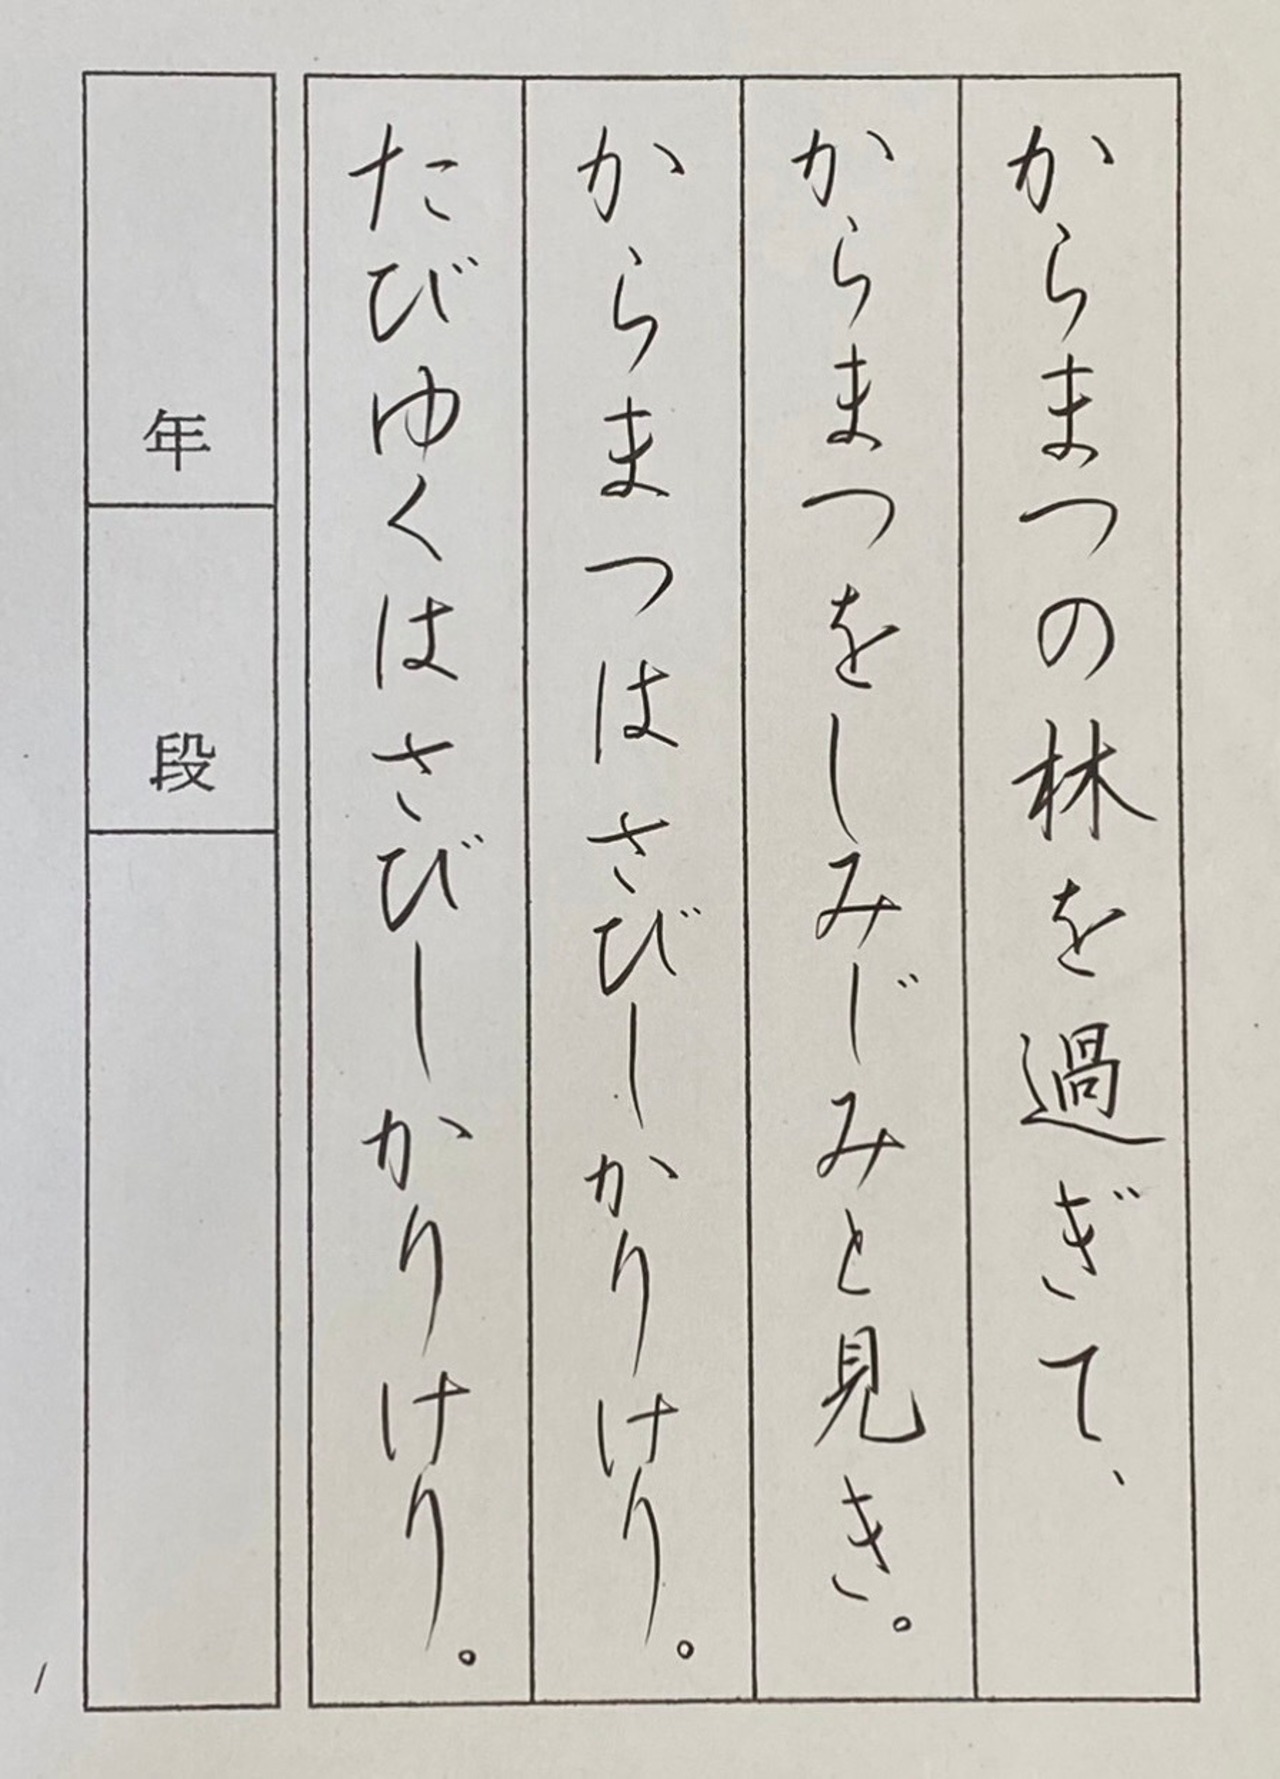 からまつの林を過ぎて、
からまつをしみじみと見き。
からまつはさびしかりけり。
たびゆくはさびしかりけり。
年
段